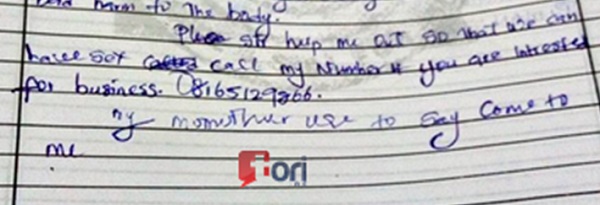 to the body.
Please sir help me out so that we can
have sex call my Number if you are interested
for business. 08165129866.
my momther use to say come to
me
Fori